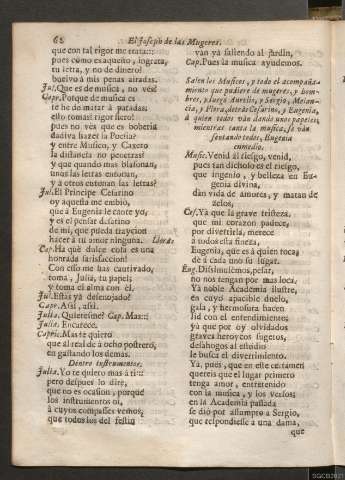 62 El Joseph de las Mugeres.
que con tal rigor me trata:::
pues como exaqueño, ingrata,
tu letra, y no de dinero?
buelvo à mis penas airadas.
Jul. Que es de musica, no ves?
Capr. Porque de musica es
te he de matar à patadas;
esto tomas? rigor fiero!
pues no vès que es boberia
dadiva hazer la Poesia?
y entre Musico, y Caxero
la distancia no penetras?
y que quando mas blasonan,
unos las letras entonan,
y à otros entonan las letras?
Jul. El Principe Cesarino
oy aquesta me embió,
que à Eugenia le cante yo,
y es el pensar desatino
de mi, que pueda traycion
hacer à tu amor ninguna. Llora.
Cap. Ha què dulce cosa es una
honrada satisfaccion!
Con esso me has cautivado,
toma, Julia, tu papel,
y toma el alma con èl.
Jul. Estàs yà desenojado?
Capr. Assi, assi.
Julia. Quieresme? Cap. Mas:::
Julia. Encarece.
Capri. Mas te quiero
que al real de à ocho postrero,
en gastando los demas.
Dentro instrumentos.
Julia. Yo te quiero mas à ti:::
pero despues lo dire,
que no es ocasion, porque
los instrumentos oì,
à cuyos compasses vemos,
que todos los del festin
van yà saliendo al jardin,
Cap. Pues la musica ayudemos.
Salen los Musicos, y todo el acompaña-
miento que pudiere de mugeres, y hom-
bres, y luego Aurelio, y Sergio, Melan-
cia, y Flora, detràs Cesarino, y Eugenia,
à quien todos van dando unos papeles,
mientras canta la musica, se van
sentando todos, Eugenia
enmedio.
Music. Venid al riesgo, venid,
pues tan dichoso es el riesgo,
que ingenio, y belleza en Eu-
genia divina,
dàn vida de amores, y matan de
zelos,
Ces. Yà que la grave tristeza,
que mi corazon padece,
por divertirla, merece
à todos esta fineza,
Eugenia, que es à quien toca,
dè à cada uno su lugar.
Eug. Dissimulèmos, pesar,
no nos tengan por mas loca.
Yà noble Academia ilustre,
en cuyo apacible duelo,
gala, y hermosura hacen
lid con el entendimiento;
yà que por oy olvidados
graves heroycos sugetos,
desahogos al estudio
le busca el divertimento.
Ya, pues, que en este certamen
quereis que el lugar primero
tenga amor, entretenido
con la musica, y los versos;
en la Academia passada
se diò por assumpto à Sergio,
que respondiesse à una dama,
que
SGCB2021